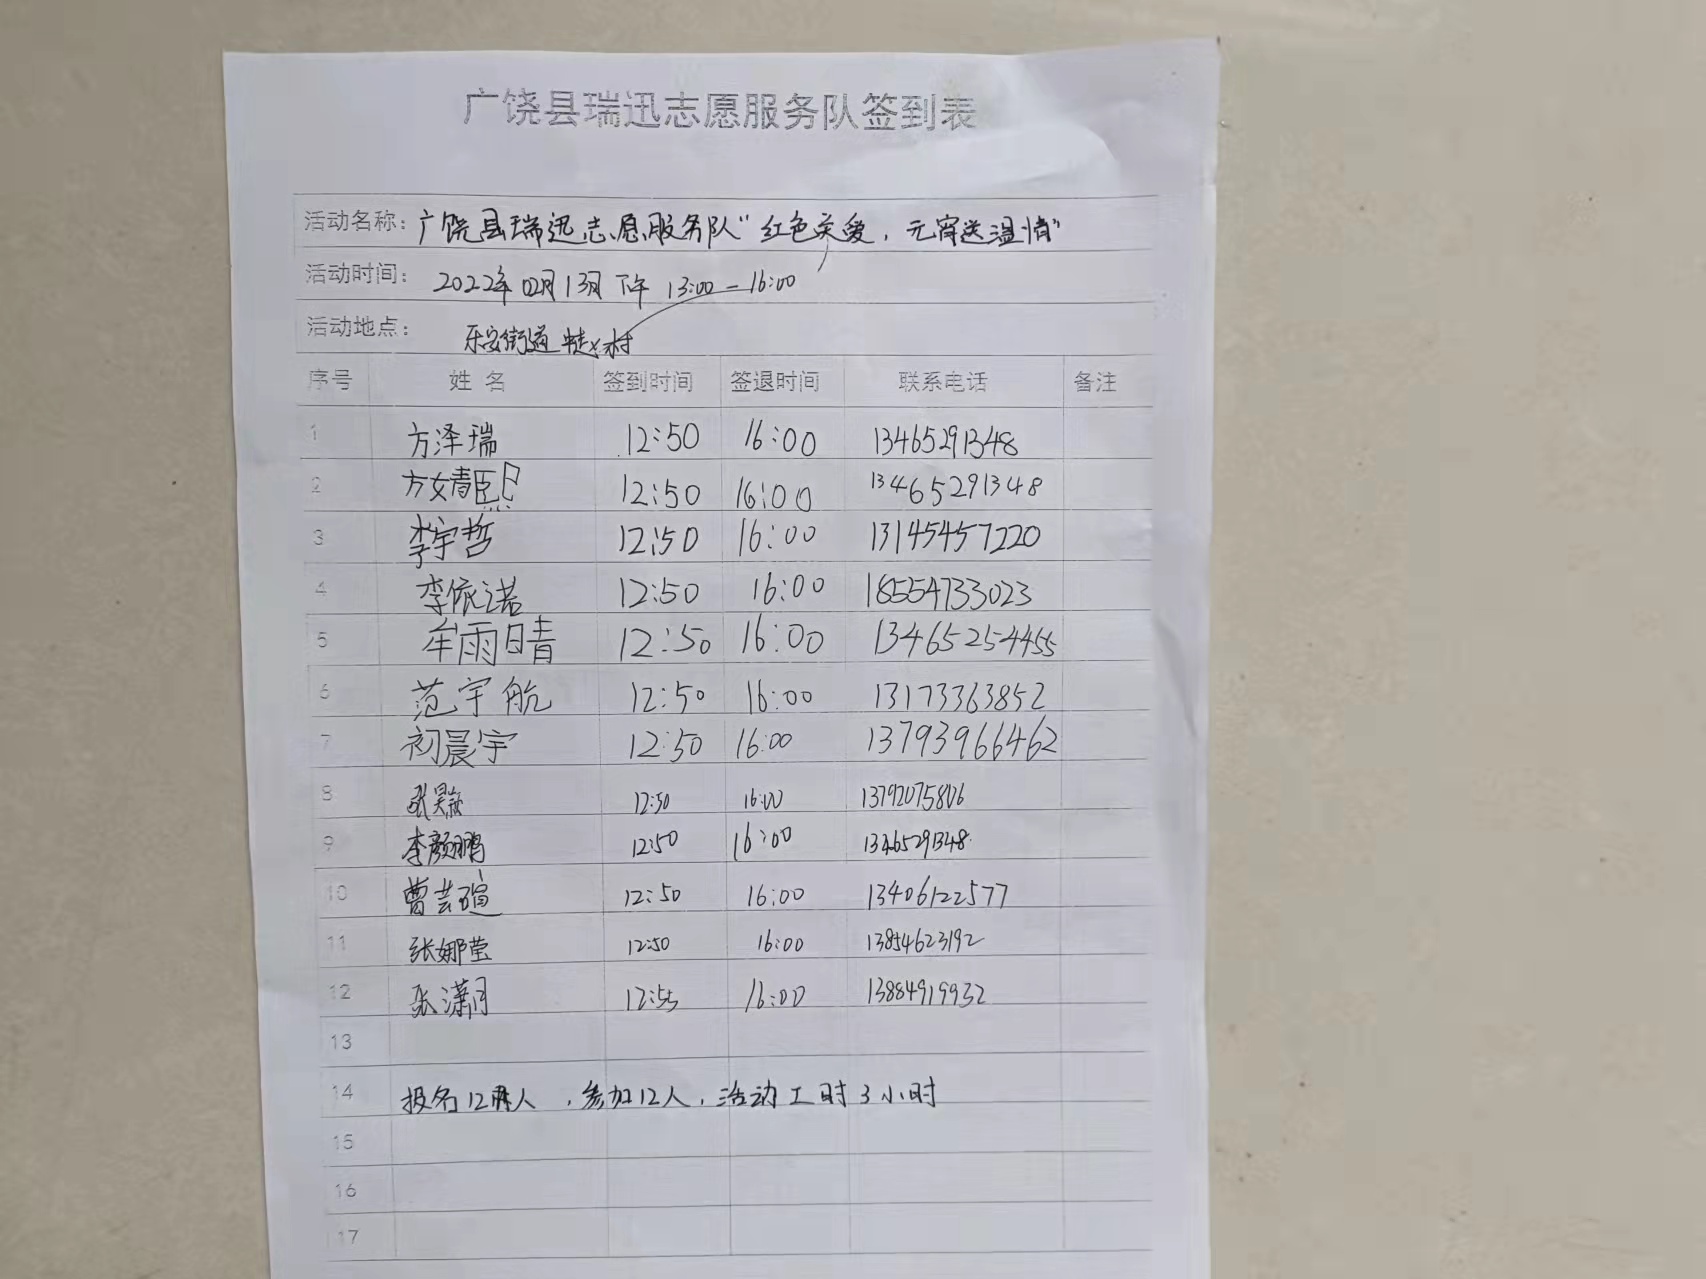 广饶县瑞迅志愿服务队签到表
活动名称：广饶县瑞迅志愿服务队“红色关爱，元宵送温情”
活动时间：2022年02月13日 下午 13:00-16:00
活动地点：乐安街道 村
序号 姓名 签到时间 签退时间 联系电话 备注
1 方泽瑞 12:50 16:00 13465291348
2 方婧熙 12:50 16:00 13465291348
3 李宇哲 12:50 16:00 13145457220
4 李依诺 12:50 16:00 18554733023
5 牟雨晴 12:50 16:00 13465254455
6 范宇航 12:50 16:00 13173363852
7 初晨宇 12:50 16:00 13793966462
8 张昊 12:50 16:00 13792075806
9 李颜鹏 12:50 16:00 13465291348
10 曹芸瑄 12:50 16:00 13406122577
11 张娜莹 12:50 16:00 13854623192
12 张潇月 12:55 16:00 13884919932
13
14 报名12人，参加12人，活动工时3小时
15
16
17